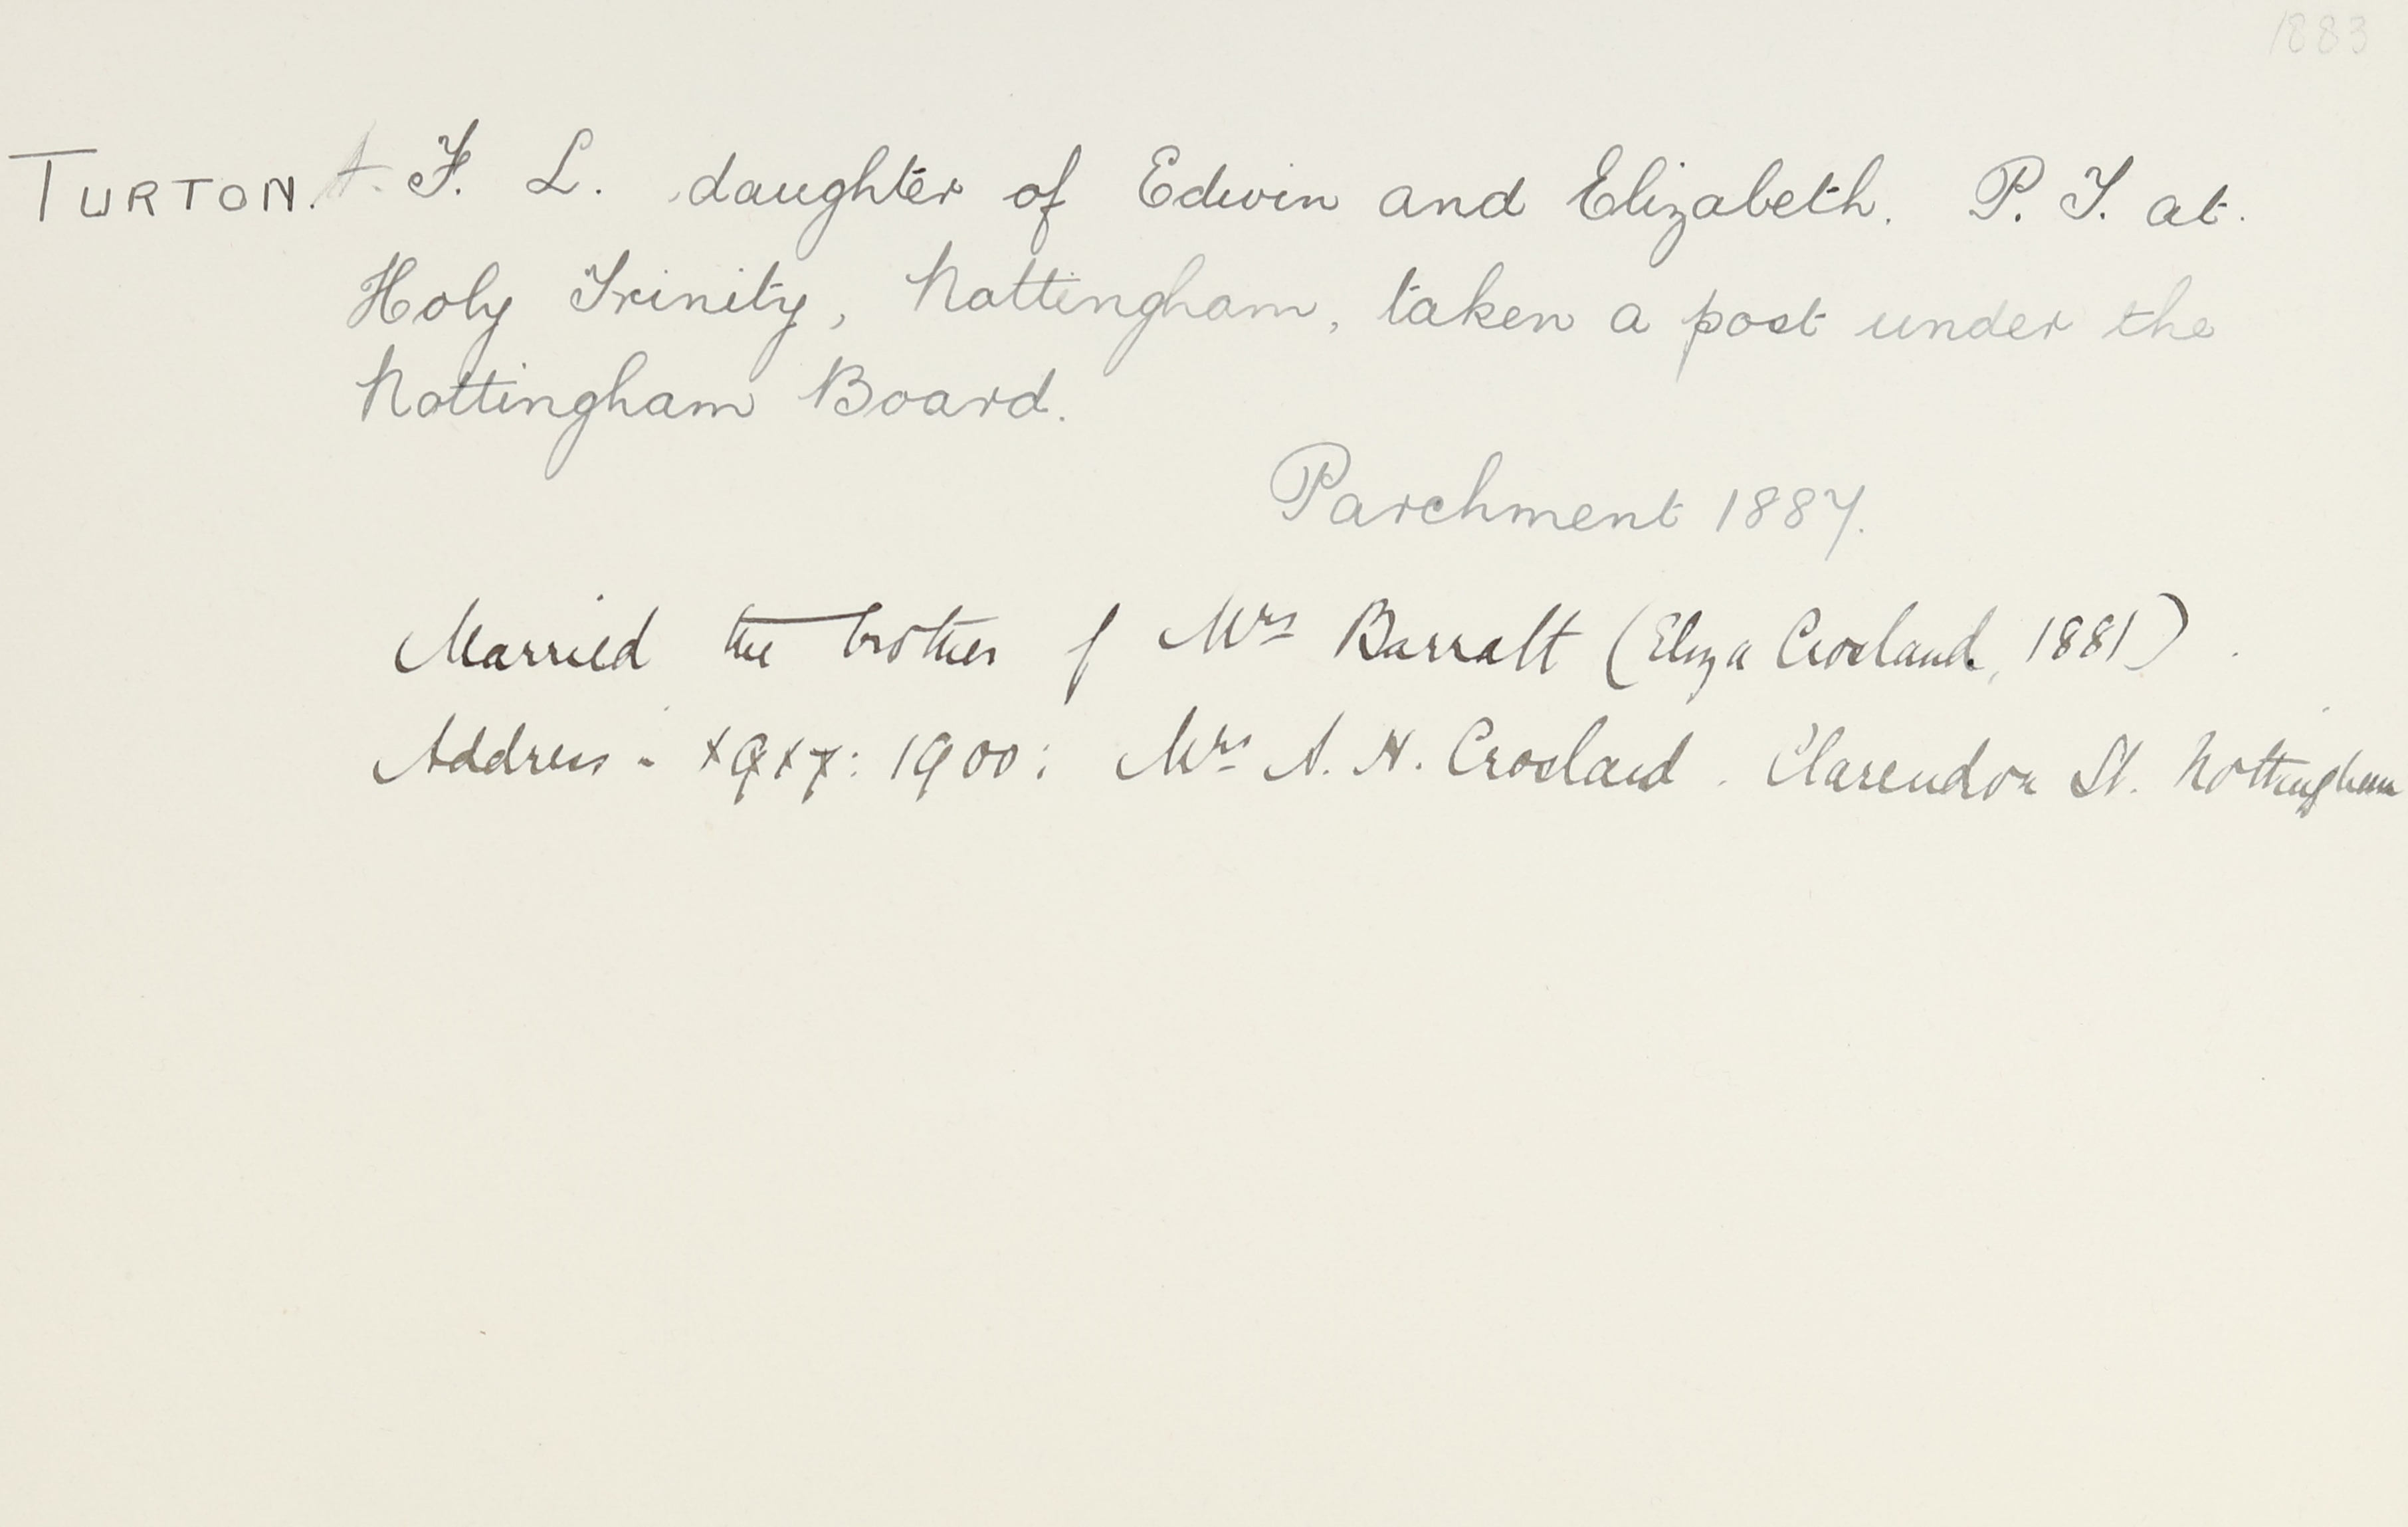 1883
TURTON. A. F. L. daughter of Edwin and Elizabeth. P. T. at.
Holy Trinity, Nottingham, taken a post under the
Nottingham Board.
Parchment 1887.
Married the brother of Mrs Barratt (Eliza Crosland, 1881).
Address - 1917: 1900: Mrs A. N. Crosland. Clarendon St. Nottingham